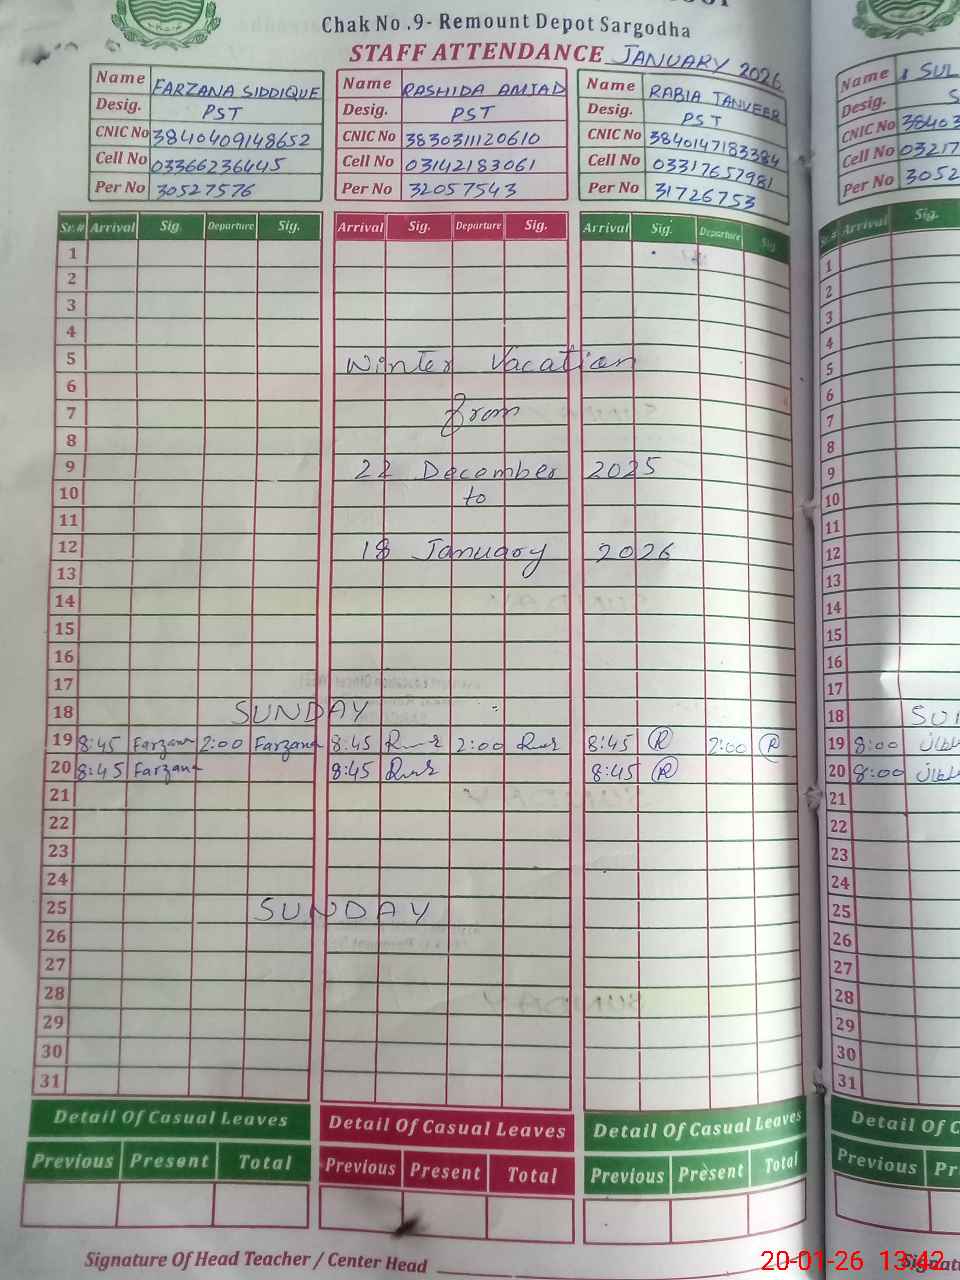 Chak No .9- Remount Depot Sargodha
STAFF ATTENDANCE JANUARY 2026
Name FARZANA SIDDIQUE
Desig. PST
CNIC No 3840409148652
Cell No 03366236445
Per No 30527576
Name RASHIDA AMJAD
Desig. PST
CNIC No 3830311120610
Cell No 03142183061
Per No 32057543
Name RABIA TANVEER
Desig. PST
CNIC No 3840147183384
Cell No 03317657981
Per No 31726753
Name SUL
Desig. S
CNIC No 38403
Cell No 03217
Per No 3052
Sr.# Arrival Sig. Departure Sig. Arrival Sig. Departure Sig. Arrival Sig. Departure Sig Sr.# Arrival Sig.
1 1
2 2
3 3
4 4
5 Winter Vacation 5
6 6
7 from 7
8 8
9 22 December 2025 9
10 to 10
11 11
12 18 January 2026 12
13 13
14 14
15 15
16 16
17 17
18 SUNDAY 18 SUN
19 8:45 Farzana 2:00 Farzana 8:45 2:00 8:45 R 2:00 R 19 8:00
20 8:45 Farzana 8:45 8:45 R 20 8:00
21 21
22 22
23 23
24 24
25 SUNDAY 25
26 26
27 27
28 28
29 29
30 30
31 31
Detail Of Casual Leaves Detail Of Casual Leaves Detail Of Casual Leaves Detail Of C
Previous Present Total Previous Present Total Previous Present Total Previous Pr
Signature Of Head Teacher / Center Head
20-01-26 13:42